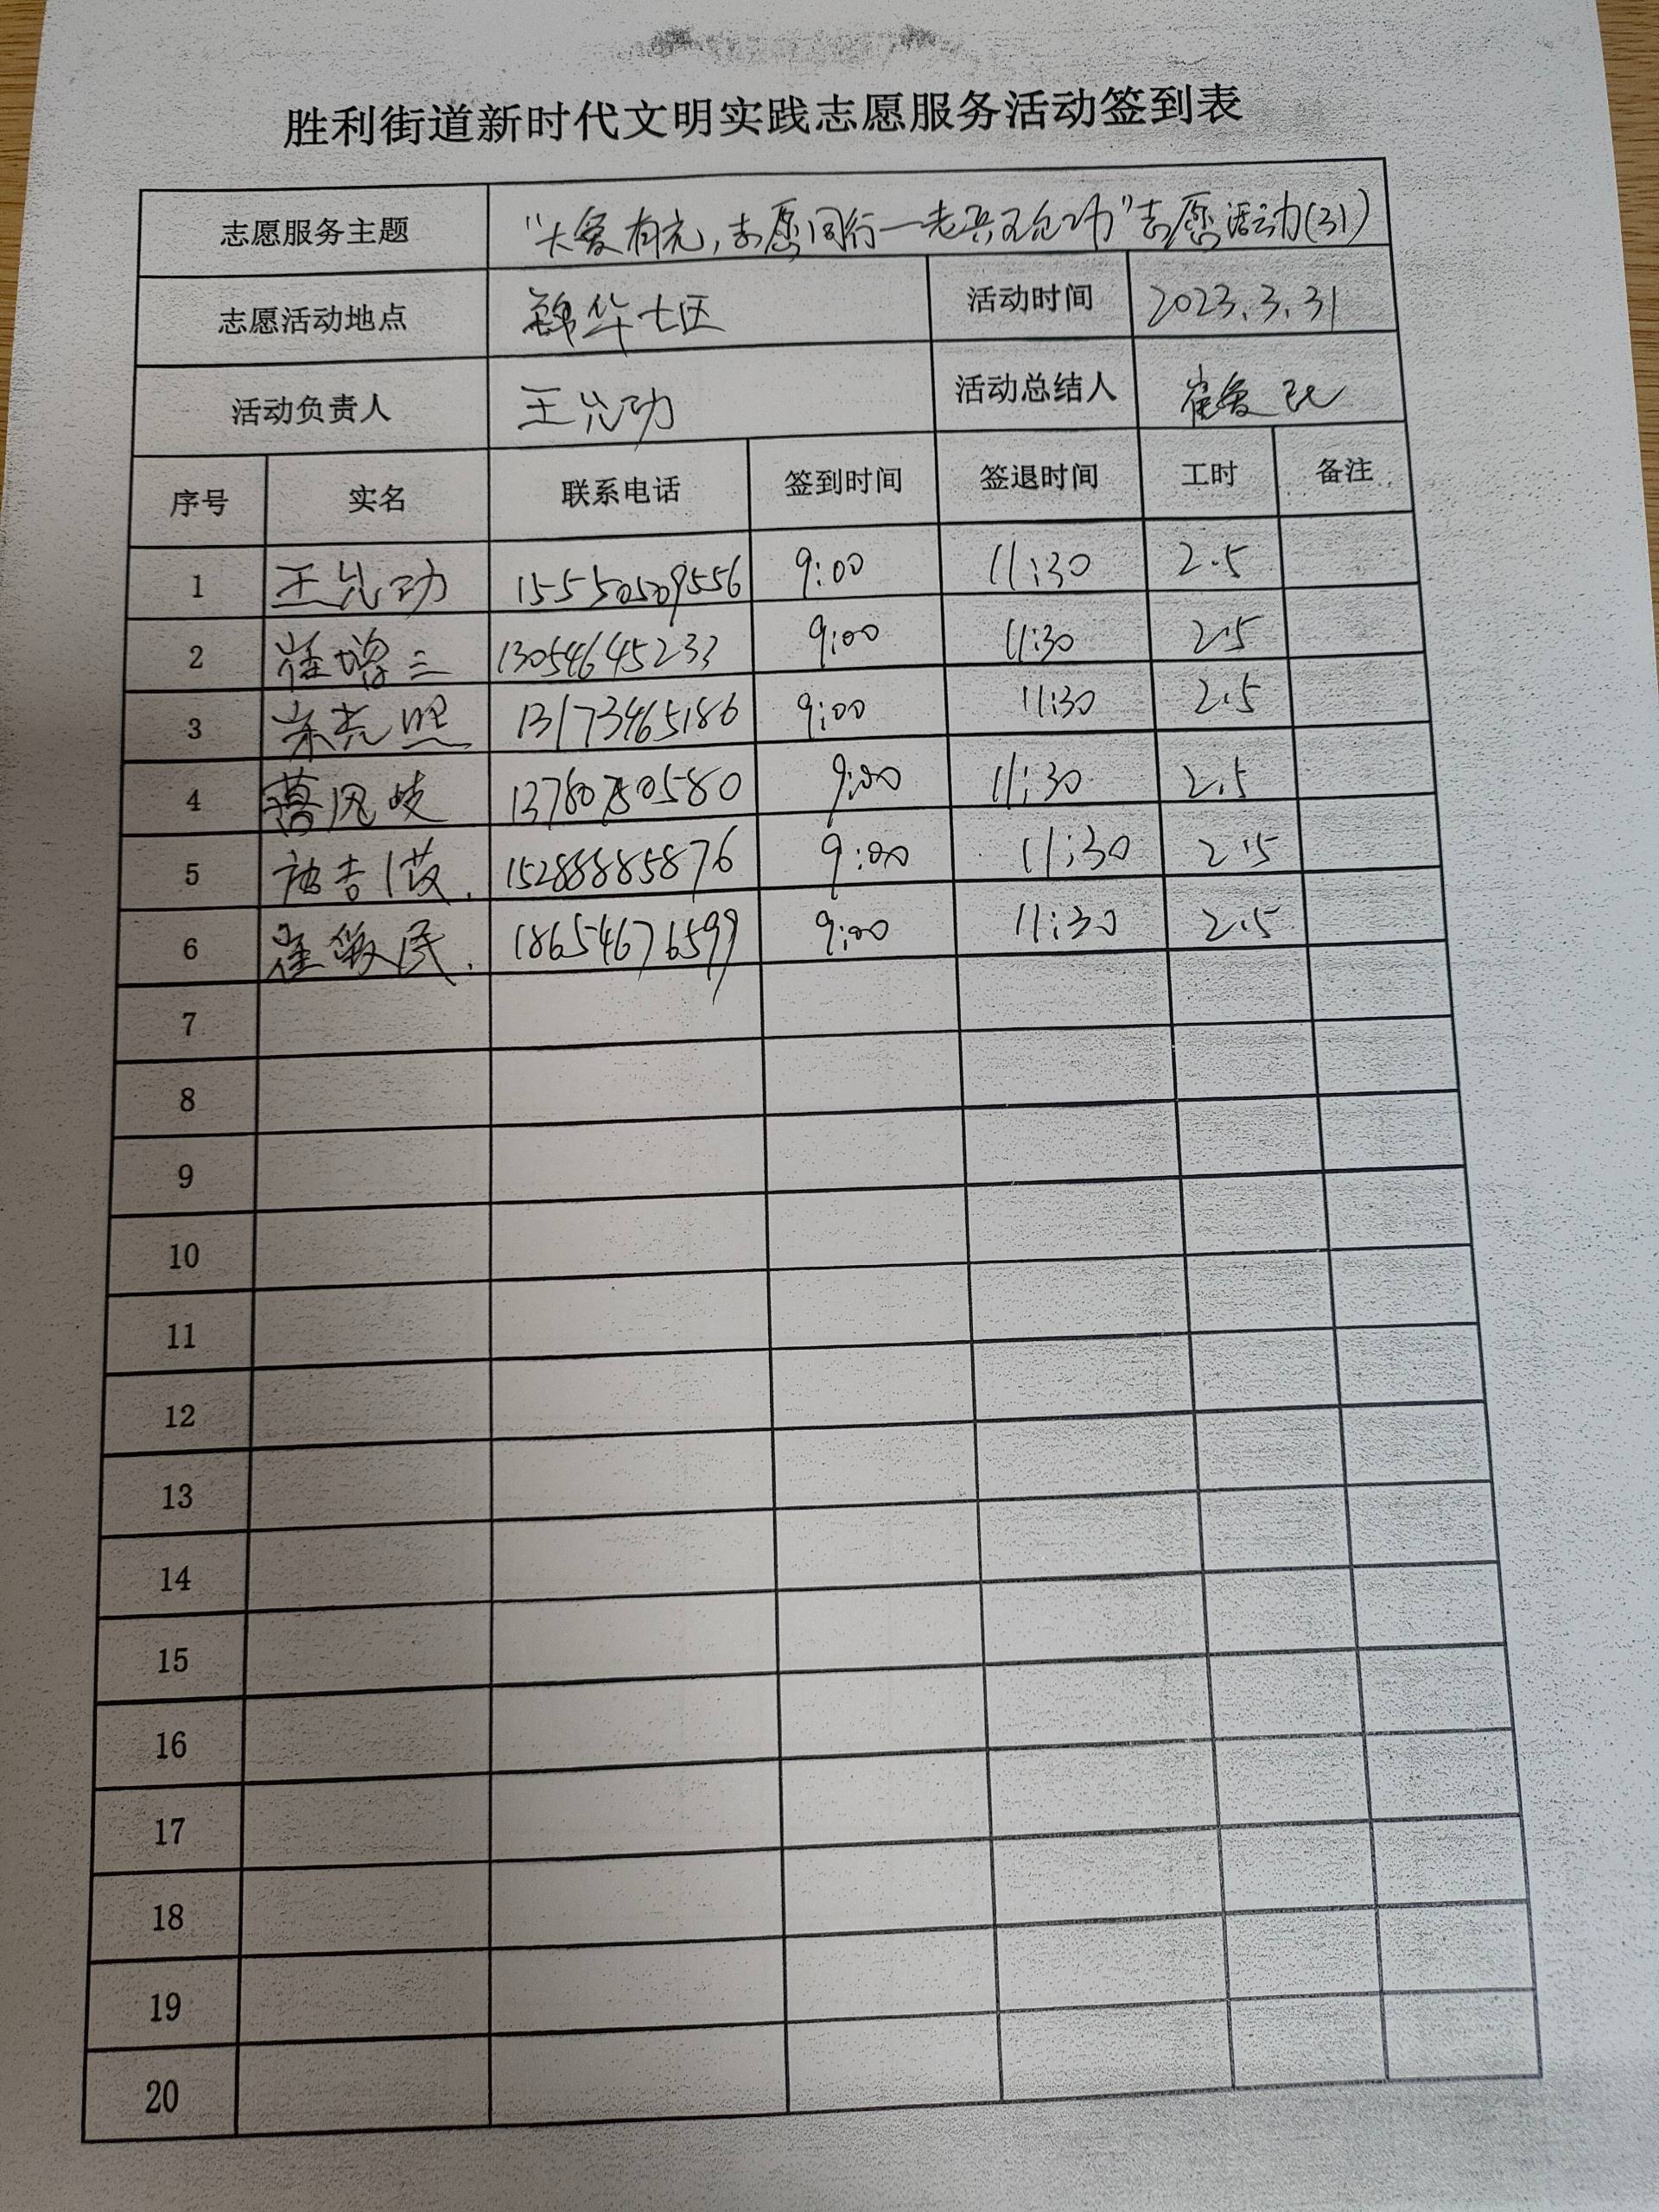 胜利街道新时代文明实践志愿服务活动签到表
志愿服务主题 "大爱有光,志愿同行—老兵王允功"志愿活动(31)
志愿活动地点 锦华七区 活动时间 2023.3.31
活动负责人 王允功 活动总结人 崔爱民
序号 实名 联系电话 签到时间 签退时间 工时 备注
1 王允功 15550509556 9:00 11:30 2.5
2 崔增三 13054645233 9:00 11:30 2.5
3 宋克照 13173465186 9:00 11:30 2.5
4 凤岐 9:00 11:30 2.5
5 15288885876 9:00 11:30 2.5
6 崔 民 18654676599 9:00 11:30 2.5
7
8
9
10
11
12
13
14
15
16
17
18
19
20